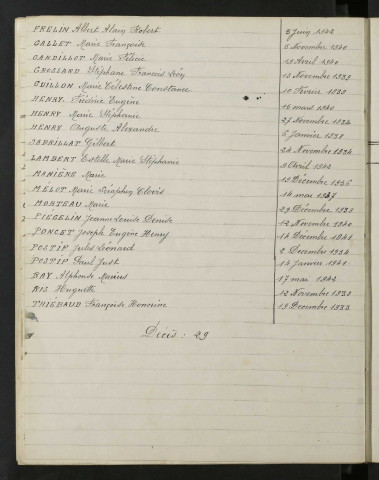 FRELIN Albert Alary Robert 5 Juin 1942
GALLET Marie Françoise 6 Novembre 1940
GANDILLOT Marie Félicie 19 Avril 1940
GROSLARD Stéphane François Léon 15 Novembre 1939
GUILLON Marie Célestine Constance 10 Février 1939
HENRY Frédéric Eugène 16 mars 1940
HENRY Marie Stéphanie 27 Novembre 1934
HENRY Auguste Alexandre 6 Janvier 1938
JABRILLAT Gilbert 24 Novembre 1934
LAMBERT Estelle Marie Stéphanie 9 Avril 1942
MANIÈRE Marie 15 Décembre 1936
MELOT Marie Séraphin Clovis 14 mai 1937
MORTEAU Marie 29 Décembre 1933
PIEGELIN Jeanne Louise Denise 12 Novembre 1940
PONCET Joseph Eugène Henry 14 Décembre 1941
POSTIF Jules Léonard 2 Décembre 1934
POSTIF Paul Just 14 Janvier 1940
RAY Alphonse Marius 17 mai 1942
RIS Huguette 12 Novembre 1933
THIEBAUD Françoise Honorine 19 Décembre 1933
Décès : 29